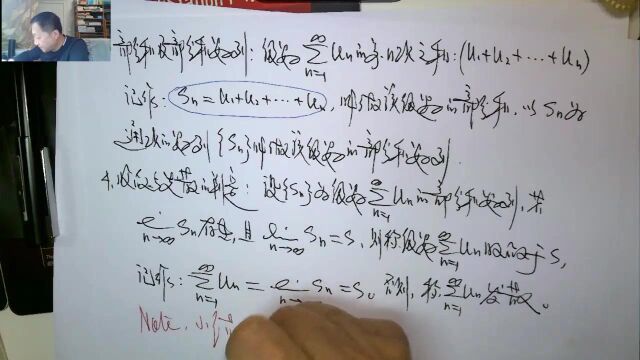 部分和及部分和数列: 级数 \sum_{n=1}^{\infty} u_n 的前 n 项之和: (u_1+u_2+\cdots+u_n)
记作: S_n = u_1+u_2+\cdots+u_n, 叫做该级数的部分和, 以 S_n 为
通项的数列 {S_n} 叫做该级数的部分和数列.
4. 收敛与发散的判定: 设 {S_n} 为级数 \sum_{n=1}^{\infty} u_n 的部分和数列, 若
\lim_{n→∞} S_n 存在, 且 \lim_{n→∞} S_n = S, 则称级数 \sum_{n=1}^{\infty} u_n 收敛于 S,
记作: \sum_{n=1}^{\infty} u_n = \lim_{n→∞} S_n = S。否则, 称 \sum_{n=1}^{\infty} u_n 发散。
Note.